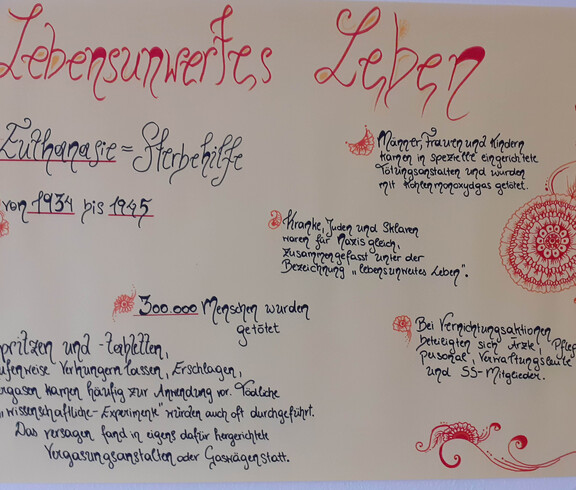 Lebensunwertes Leben
Euthanasie = Sterbehilfe
von 1934 bis 1945
Männer, Frauen und Kindern
kamen in spezielle eingerichtete
Tötungsanstalten und wurden
mit Kohlenmonoxydgas getötet.
Kranke, Juden und Sklaven
waren für Nazis gleich,
zusammengefasst unter der
Bezeichnung „lebensunwertes Leben".
300.000 Menschen wurden
getötet
Bei Vernichtungsaktionen
beteiligten sich Ärzte, Pfleg
personal, Verwaltungsleute
und SS-Mitglieder.
pritzen und -tabletten,
ufenweise Verhungern lassen, Erschlagen,
rgasen kamen häufig zur Anwendung vor. Tödliche
„wissenschaftliche-Experimente" würden auch oft durchgeführt.
Das vergasen fand in eigens dafür hergerichtete
Vergasungsanstalten oder Gaswägen statt.